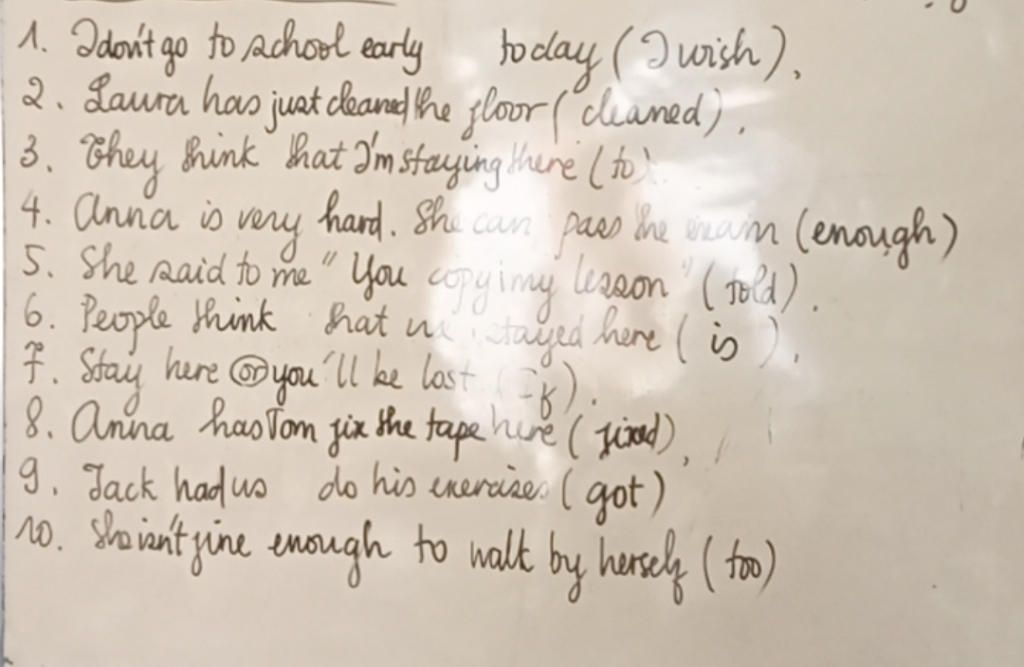 1. I don't go to school early today (I wish).
2. Laura has just cleaned the floor (cleaned).
3. They think that I'm staying there (to).
4. Anna is very hard. She can pass the exam (enough)
5. She said to me "You copy my lesson" (told).
6. People think that we stayed here (is).
7. Stay here or you'll be lost (If).
8. Anna has Tom fix the tape here (fixed),
9. Jack had us do his exercises (got)
10. She isn't fine enough to walk by herself (too)